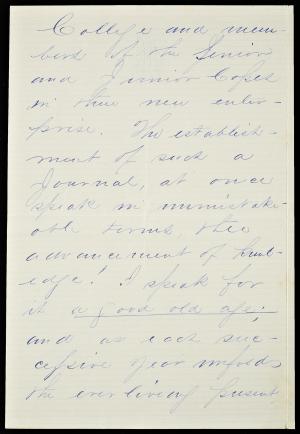 College and mem-
bers of the Senior
and Junior Copes
in their new enter-
prise. The establish-
ment of such a
Journal, at once
speak in unmistake-
able terms, the
advancement of knol-
edge! I speak for
it a good old age;
and as each suc-
cessive year unfolds
the ever living present